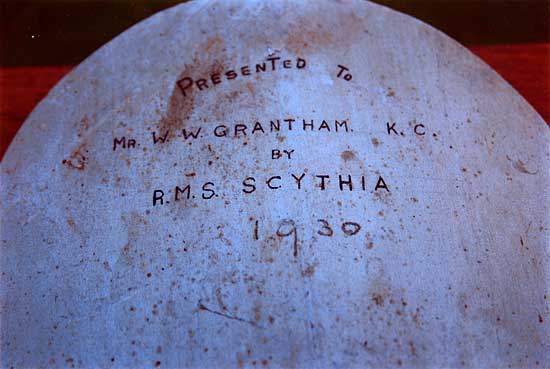 PRESENTED TO
MR. W. W. GRANTHAM. K. C.
BY
R.M.S. SCYTHIA
1930